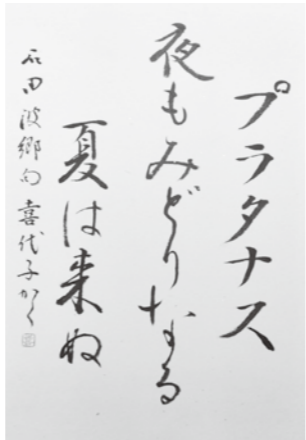 プラタナス
夜もみどりなる
夏は来ぬ
石田波郷句 喜代子かく